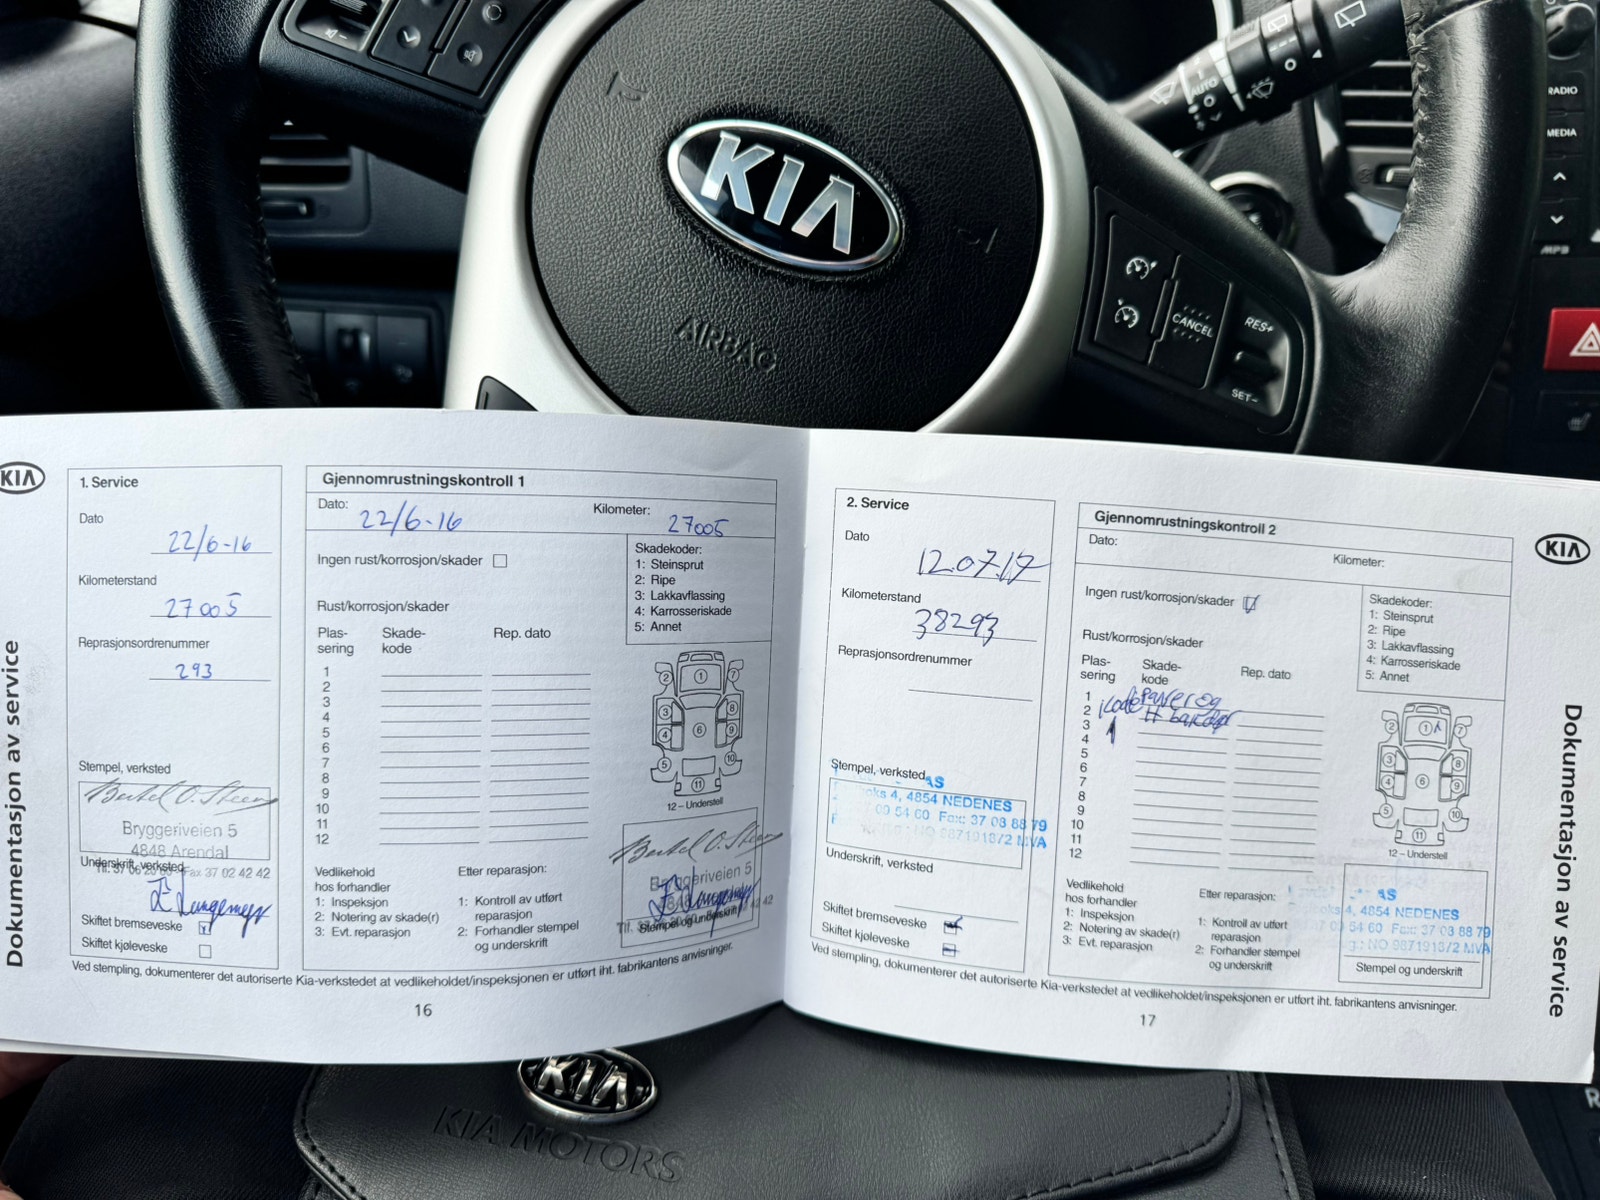 RADIO
MEDIA
MP3
AUTO
KIA
AIRBAG
CANCEL
RES+
SET-
KIA
Dokumentasjon av service
1. Service
Dato
22/6-16
Kilometerstand
27005
Reprasjonsordrenummer
293
Stempel, verksted
Bertel O. Steen
Bryggeriveien 5
4848 Arendal
Underskrift, verksted
Fax 37 02 42 42
Skiftet bremseveske
Skiftet kjøleveske
Gjennomrustningskontroll 1
Dato: 22/6-16
Kilometer: 27005
Ingen rust/korrosjon/skader
Skadekoder:
1: Steinsprut
2: Ripe
3: Lakkavflassing
4: Karrosseriskade
5: Annet
Rust/korrosjon/skader
Plas-
sering
Skade-
kode
Rep. dato
1
2
3
4
5
6
7
8
9
10
11
12
1
2
7
3
8
4
6
9
5
10
11
12 – Understell
Vedlikehold
hos forhandler
1: Inspeksjon
2: Notering av skade(r)
3: Evt. reparasjon
Etter reparasjon:
1: Kontroll av utført
reparasjon
2: Forhandler stempel
og underskrift
Bertel O. Steen
Bryggeriveien 5
Stempel og underskrift
Ved stempling, dokumenterer det autoriserte Kia-verkstedet at vedlikeholdet/inspeksjonen er utført iht. fabrikantens anvisninger.
16
2. Service
Dato
12.07.17
Kilometerstand
38293
Reprasjonsordrenummer
Stempel, verksted
AS
4, 4854 NEDENES
Fax: 37 08 88 79
MVA
Underskrift, verksted
Skiftet bremseveske
Skiftet kjøleveske
Gjennomrustningskontroll 2
Dato:
Kilometer:
Ingen rust/korrosjon/skader
Skadekoder:
1: Steinsprut
2: Ripe
3: Lakkavflassing
4: Karrosseriskade
5: Annet
Rust/korrosjon/skader
Plas-
sering
Skade-
kode
Rep. dato
1
2
3
4
5
6
7
8
9
10
11
12
1
2
7
3
8
4
6
9
5
10
11
12 – Understell
Vedlikehold
hos forhandler
1: Inspeksjon
2: Notering av skade(r)
3: Evt. reparasjon
Etter reparasjon:
1: Kontroll av utført
reparasjon
2: Forhandler stempel
og underskrift
AS
4, 4854 NEDENES
Fax: 37 08 88 79
MVA
Stempel og underskrift
Ved stempling, dokumenterer det autoriserte Kia-verkstedet at vedlikeholdet/inspeksjonen er utført iht. fabrikantens anvisninger.
17
KIA
Dokumentasjon av service
KIA
KIA MOTORS